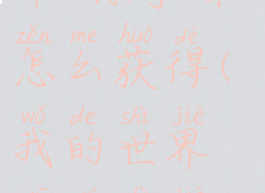 zěn me huò dé
怎么获得(
wǒ de shì jiè
我的世界